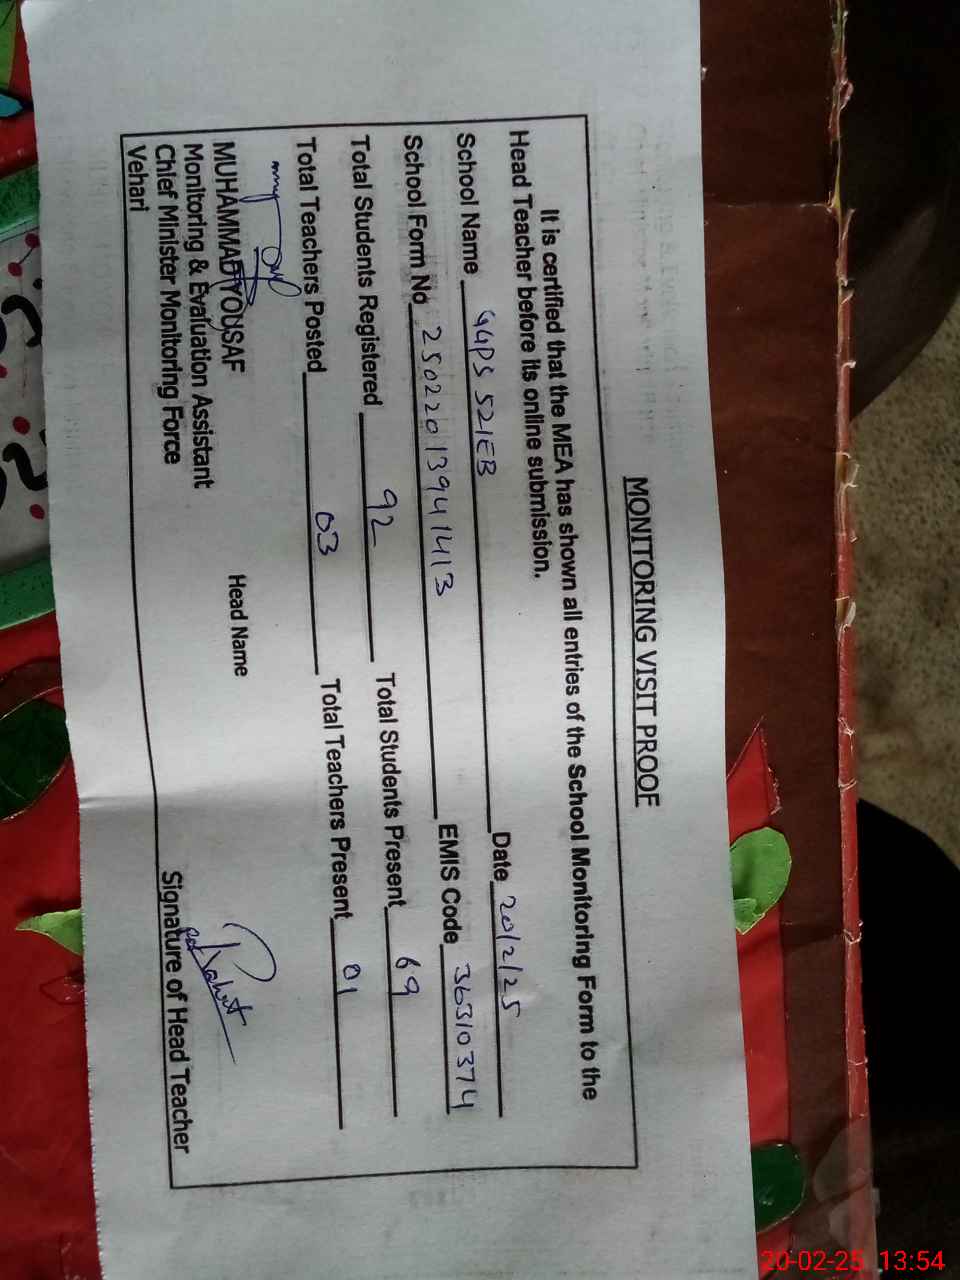 MONITORING VISIT PROOF
It is certified that the MEA has shown all entries of the School Monitoring Form to the
Head Teacher before its online submission.
School Name GGPS 521EB Date 20/2/25
School Form No 25022013941413 EMIS Code 36310374
Total Students Registered 92 Total Students Present 69
Total Teachers Posted 03 Total Teachers Present 01
MUHAMMAD YOUSAF
Monitoring & Evaluation Assistant
Chief Minister Monitoring Force
Vehari
Head Name
Signature of Head Teacher
20-02-25 13:54